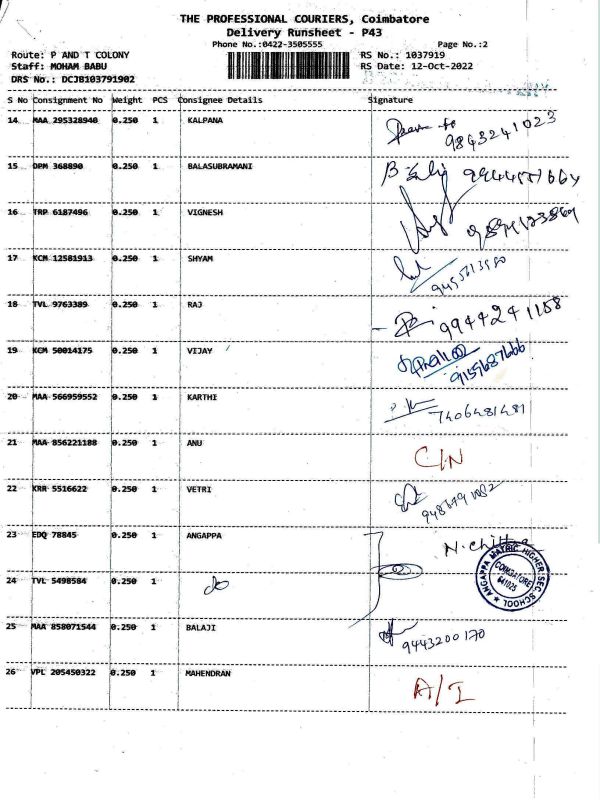 THE PROFESSIONAL COURIERS, Coimbatore
Delivery Runsheet - P43
Phone No.:0422-3505555 Page No.:2
Route: P AND T COLONY RS No.: 1037919
Staff: MOHAM BABU RS Date: 12-Oct-2022
DRS No.: DCJB103791902
S No Consignment No Weight PCS Consignee Details Signature
14 MAA 295328940 0.250 1 KALPANA 9843241023
15 DPM 368890 0.250 1 BALASUBRAMANI
16 TRP 6187496 0.250 1 VIGNESH
17 KCM 12581913 0.250 1 SHYAM
18 TVL 9763389 0.250 1 RAJ 9944241108
19 KCM 50014175 0.250 1 VIJAY 9159687666
20 MAA 566959552 0.250 1 KARTHI 7406481481
21 MAA 856221188 0.250 1 ANU C/N
22 KRR 5516622 0.250 1 VETRI
23 EDQ 78845 0.250 1 ANGAPPA
24 TVL 5498584 0.250 1 do
ANGAPPA MATRIC HIGHER SEC. SCHOOL
COIMBATORE
641025
25 MAA 858071544 0.250 1 BALAJI 9443200170
26 VPL 205450322 0.250 1 MAHENDRAN A/I